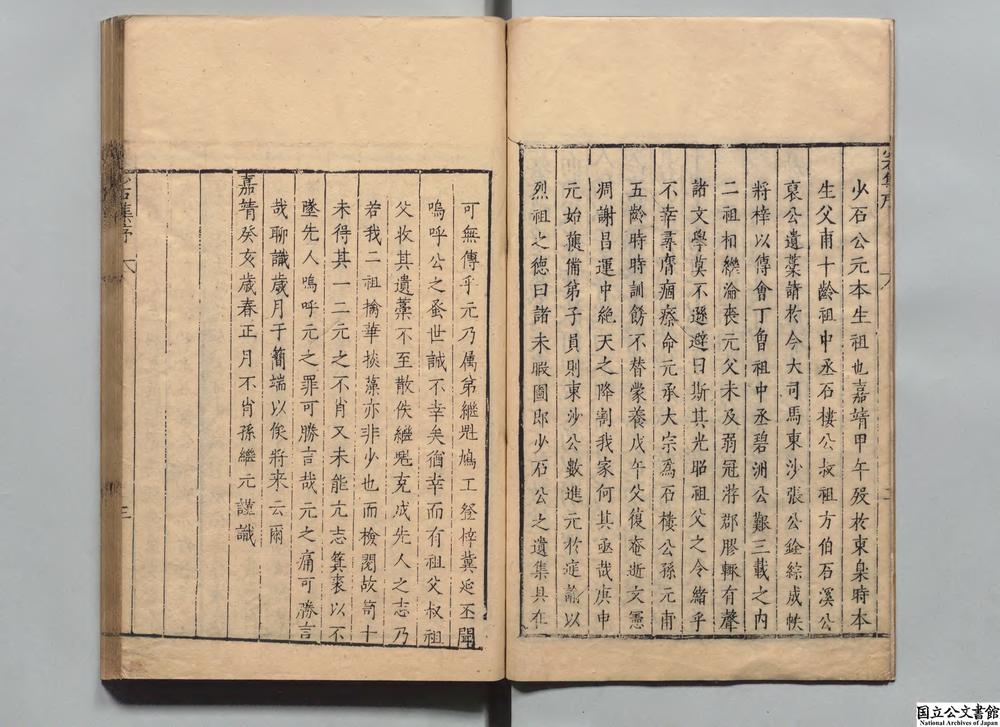 少石公元本生祖也嘉靖甲午歿於東臬時本
生父甫十齡祖中丞石樓公叔祖方伯石溪公
哀公遺藁請於今大司馬東沙張公銓綜成帙
將梓以傳會丁魯祖中丞碧洲公艱三載之内
二祖相繼淪喪元父未及弱冠游郡膠輒有聲
諸文學莫不遜避曰斯其光昭祖父之令緒乎
不幸尋膺痼瘵命元承大宗為石樓公孫元甫
五齡時時訓飭不替蒙養戊午父復奄逝文憲
凋謝昌運中絶天之降割我家何其亟哉庚申
元始獲備弟子員則東沙公數進元於庭勗以
烈祖之德曰諸未暇圖即少石公之遺集具在
可無傳乎元乃属弟繼鳩工登梓冀延丕聞
嗚呼公之蚤世誠不幸矣猶幸而有祖父叔祖
父收其遺藁不至散佚繼克成先人之志乃
若我二祖摛華掞藻亦非少也而檢閱故笥十
未得其一二元之不肖又未能亢志箕裘以不
墜先人嗚呼元之罪可勝言哉元之痛可勝言
哉聊識歲月于簡端以俟將来云爾
嘉靖癸亥歲春正月不肖孫繼元謹識
石集序
三
国立公文書館
National Archives of Japan